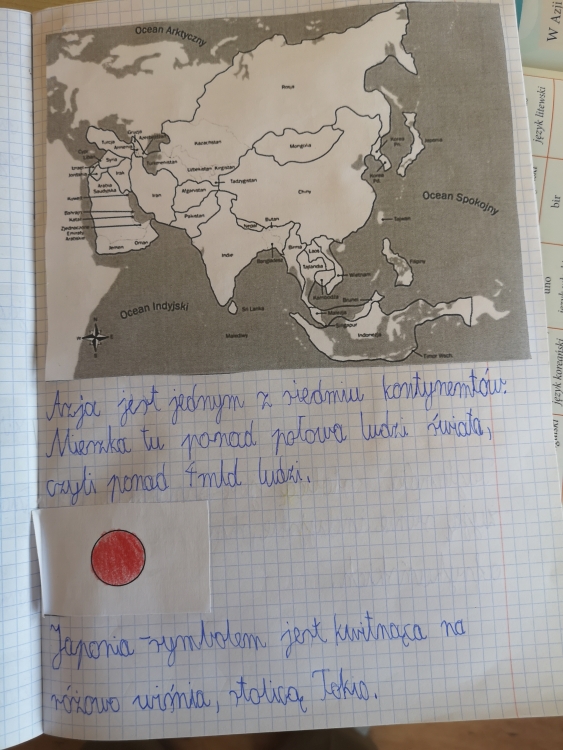 Ocean Arktyczny
Rosja
Gruzja
Azerbejdżan
Armenia
Turcja
Kazachstan
Mongolia
Uzbekistan
Turkmenistan
Tadżykistan
Syria
Izrael
Jordania
Irak
Iran
Afganistan
Chiny
Japonia
Kuwejt
Arabia
Saudyjska
Bahrajn
Katar
Zjednoczone
Emiraty
Arabskie
Jemen
Oman
Pakistan
Nepal
Butan
Indie
Bangladesz
Birma
Laos
Tajlandia
Wietnam
Kambodża
Tajwan
Filipiny
Brunei
Malezja
Singapur
Indonezja
Timor Wsch.
Sri Lanka
Malediwy
Ocean Spokojny
Ocean Indyjski
N
W
E
S
Azja jest jednym z siedmiu kontynentów.
Mieszka tu ponad połowa ludzi świata,
czyli ponad 4mld ludzi.
Japonia - symbolem jest kwitnąca na
różowo wiśnia, stolicą Tokio.
W Azji
język litewski
bir
uno
język koreański